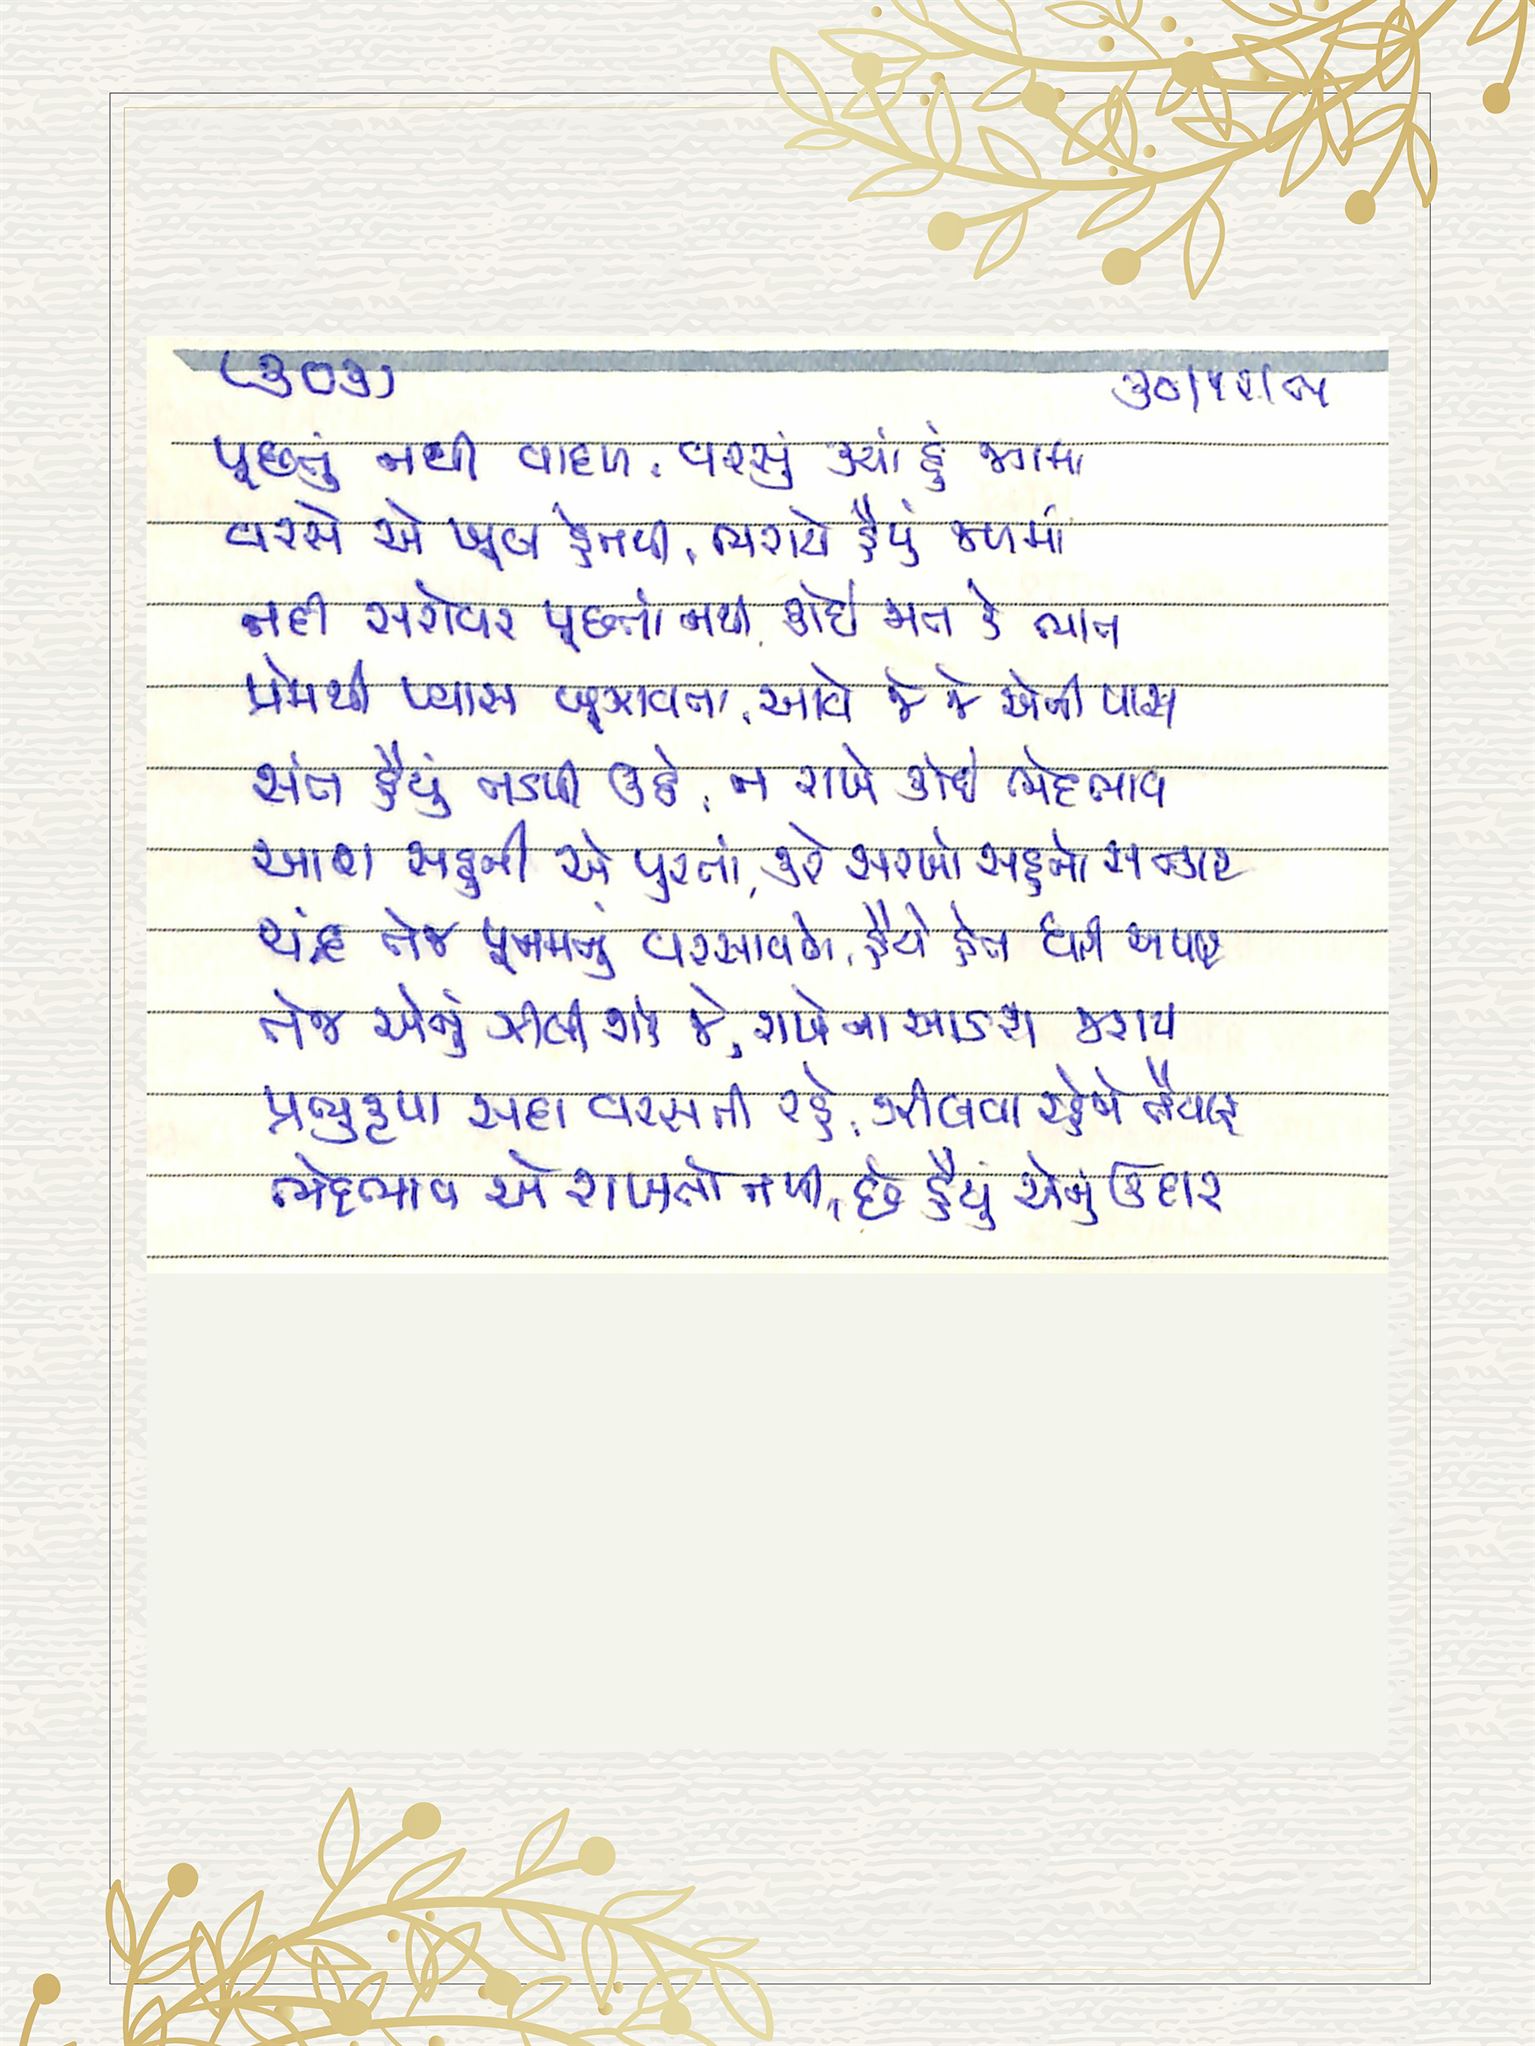 (૩૦૩)
પૂછતું નથી વાદળ, વરસું ક્યાં હું જગમા
વરસે એ ખૂબ હેતથી, ભરાયે હૈયું જળમાં
નદી સરોવર પૂછતાં નથી, કોઈ જાત કે ભાત
પ્રેમથી પ્યાસ બૂઝાવતા, આવે જે જે એની પાસ
સંત હૈયું તડપી ઉઠે, ન રાખે કોઈ ભેદભાવ
આશ સહુની એ પુરતાં, કરે સરખો સહુનો સત્કાર
ચંદ્ર તેજ પૂનમનું વરસાવતો, હૈયે હેત ધરી અપાર
તેજ એનું ઝીલી શકે જે, રાખે ના આડશ જરાય
પ્રભુકૃપા સદા વરસતી રહે, ઝીલવા રહેજે તૈયાર
ભેદભાવ એ રાખતો નથી, છે હૈયું એનું ઉદાર